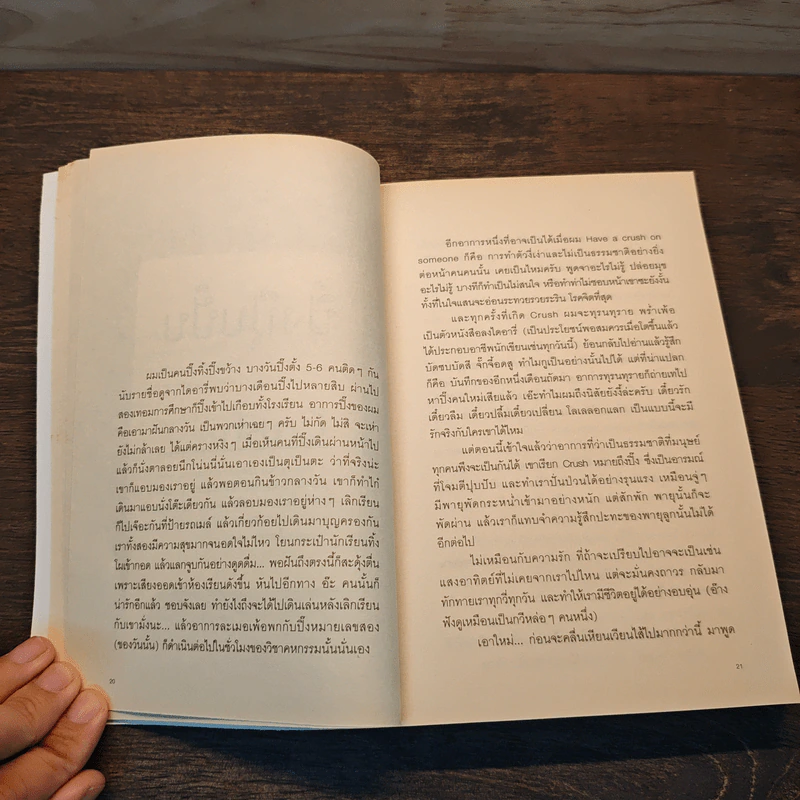 ผมเป็นคนปิ๊งทิ้งปิ๊งขว้าง บางวันปิ๊งตั้ง 5-6 คนติดๆ กัน
นับรายชื่อดูจากไดอารี่พบว่าบางเดือนปิ๊งไปหลายสิบ ผ่านไป
สองเทอมการศึกษาก็ปิ๊งเข้าไปเกือบทั้งโรงเรียน อาการปิ๊งของผม
คือเอามาฝันกลางวัน เป็นพวกเห่าเฉยๆ ครับ ไม่กัด ไม่สิ จะเห่า
ยังไม่กล้าเลย ได้แต่ครางหงิงๆ เมื่อเห็นคนที่ปิ๊งเดินผ่านหน้าไป
แล้วก็นั่งตาลอยนึกโน่นนี่นั่นเอาเองเป็นตุเป็นตะ ว่าที่จริงน่ะ
เขาก็แอบมองเราอยู่ แล้วพอตอนกินข้าวกลางวัน เขาก็ทำไก๋
เดินมาแอบนั่งโต๊ะเดียวกัน แล้วลอบมองเราอยู่ห่างๆ เลิกเรียน
ก็ไปเจอะกันที่ป้ายรถเมล์ แล้วเกี่ยวก้อยไปเดินมาบุญครองกัน
เราทั้งสองมีความสุขมากจนอดใจไม่ไหว โยนกระเป๋านักเรียนทิ้ง
โผเข้ากอด แล้วแลกจูบกันอย่างดูดดื่ม... พอฝันถึงตรงนี้ก็สะดุ้งตื่น
เพราะเสียงออดเข้าห้องเรียนดังขึ้น หันไปอีกทาง อ๊ะ คนนั้นก็
น่ารักอีกแล้ว ชอบจังเลย ทำยังไงถึงจะได้ไปเดินเล่นหลังเลิกเรียน
กับเขามั่งนะ... แล้วอาการละเมอเพ้อพกกับปิ๊งหมายเลขสอง
(ของวันนั้น) ก็ดำเนินต่อไปในชั่วโมงของวิชาคหกรรมนั้นนั่นเอง
20
อีกอาการหนึ่งที่อาจเป็นได้เมื่อผม Have a crush on
someone ก็คือ การทำตัวงี่เง่าและไม่เป็นธรรมชาติอย่างยิ่ง
ต่อหน้าคนคนนั้น เคยเป็นไหมครับ พูดจาอะไรไม่รู้ ปล่อยมุข
อะไรไม่รู้ บางทีก็ทำเป็นไม่สนใจ หรือทำท่าไม่ชอบหน้าเขาซะยังงั้น
ทั้งที่ในใจแสนจะอ่อนระทวยรวยระริน โรคจิตที่สุด
และทุกครั้งที่เกิด Crush ผมจะทุรนทุราย พร่ำเพ้อ
เป็นตัวหนังสือลงไดอารี่ (เป็นประโยชน์พอสมควรเมื่อโตขึ้นแล้ว
ได้ประกอบอาชีพนักเขียนเช่นทุกวันนี้) ย้อนกลับไปอ่านแล้วรู้สึก
บัดซบบัดสี จั๊กจี้อดสู ทำไมกูเป็นอย่างนั้นไปได้ แต่ที่น่าแปลก
ก็คือ บันทึกของอีกหนึ่งเดือนถัดมา อาการทุรนทุรายก็ถ่ายเทไป
หาปิ๊งคนใหม่เสียแล้ว เอ๊ะทำไมผมถึงนิสัยยังงี้ล่ะครับ เดี๋ยวรัก
เดี๋ยวลืม เดี๋ยวปลื้มเดี๋ยวเปลี่ยน โลเลลอกแลก เป็นแบบนี้จะมี
รักจริงกับใครเขาได้ไหม
แต่ตอนนี้เข้าใจแล้วว่าอาการที่ว่าเป็นธรรมชาติที่มนุษย์
ทุกคนพึงจะเป็นกันได้ เขาเรียก Crush หมายถึงปิ๊ง ซึ่งเป็นอารมณ์
ที่โจมตีปุบปับ และทำเราปั่นป่วนได้อย่างรุนแรง เหมือนจู่ๆ
มีพายุพัดกระหน่ำเข้ามาอย่างหนัก แต่สักพัก พายุนั้นก็จะ
พัดผ่าน แล้วเราก็แทบจำความรู้สึกปะทะของพายุลูกนั้นไม่ได้
อีกต่อไป
ไม่เหมือนกับความรัก ที่ถ้าจะเปรียบไปอาจจะเป็นเช่น
แสงอาทิตย์ที่ไม่เคยจากเราไปไหน แต่จะมั่นคงถาวร กลับมา
ทักทายเราทุกวี่ทุกวัน และทำให้เรามีชีวิตอยู่ได้อย่างอบอุ่น (อ๊าง
ฟังดูเหมือนเป็นกวีหล่อๆ คนหนึ่ง)
เอาใหม่... ก่อนจะคลื่นเหียนเวียนไส้ไปมากกว่านี้ มาพูด
21